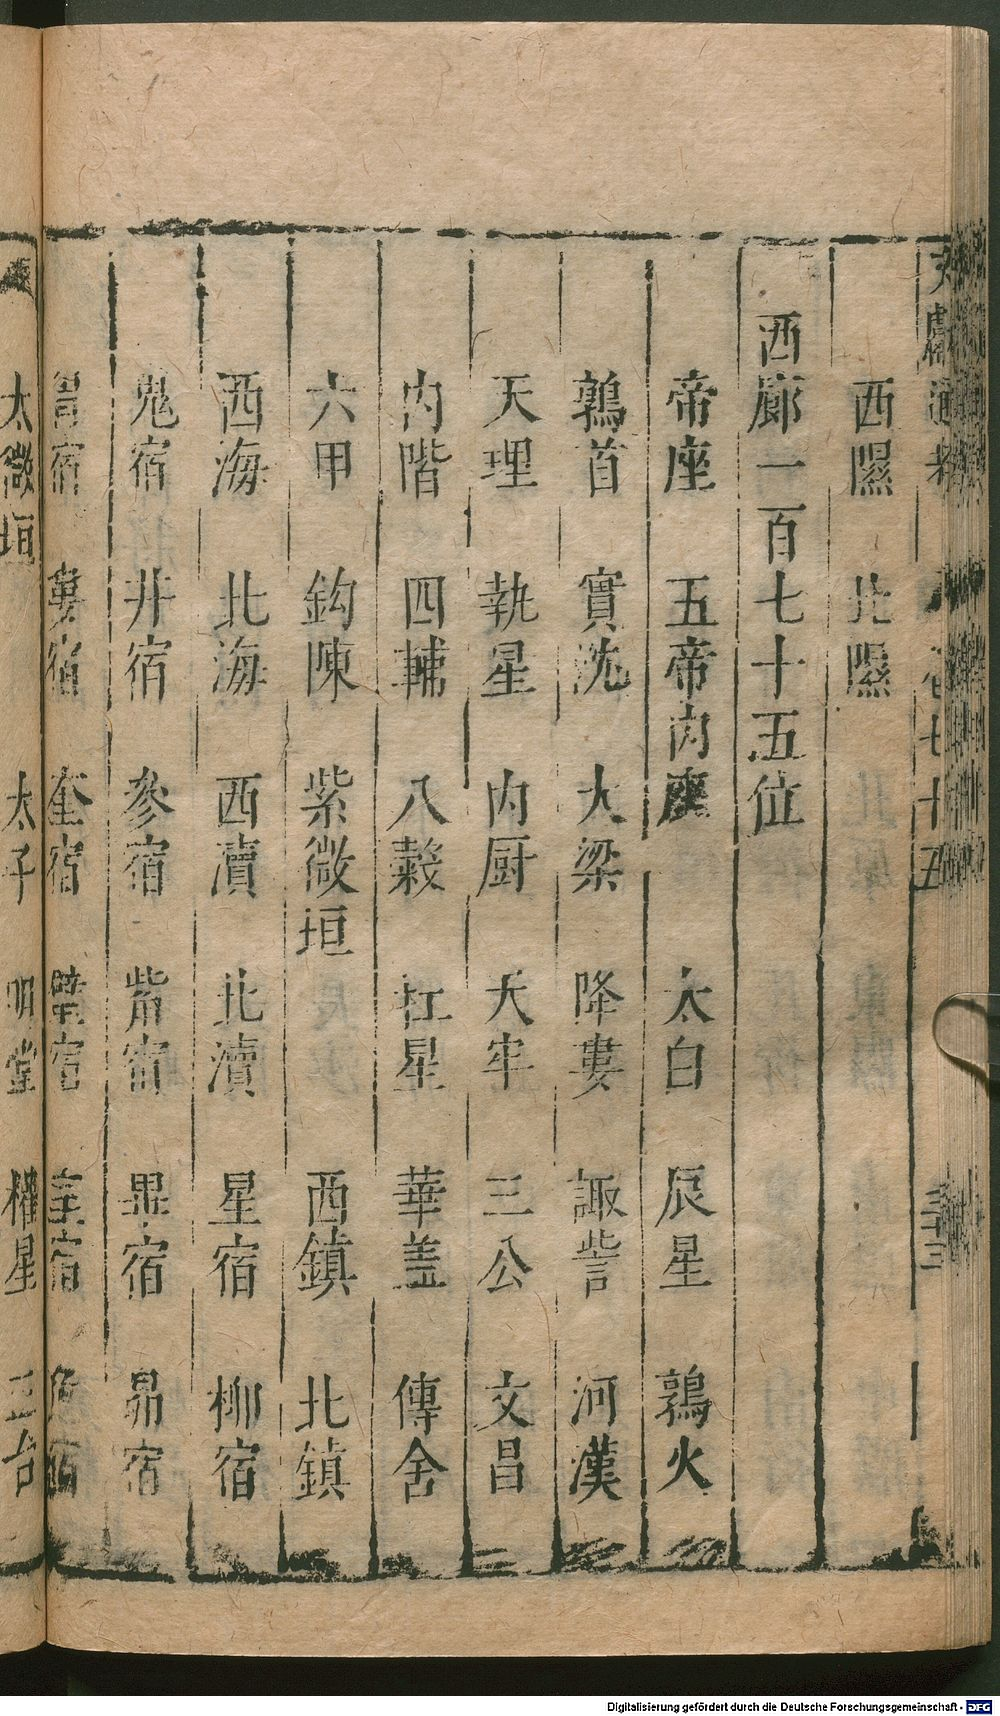 文獻通考 卷七十五 三十三
西隰 北隰
西廊一百七十五位
帝座 五帝內座 太白 辰星 鶉火
鶉首 實沈 大梁 降婁 諏訾 河漢
天理 執星 內厨 天牢 三公 文昌
內階 四輔 八穀 杠星 華盖 傳舍
六甲 鈎陳 紫微垣 西鎮 北鎮
西海 北海 西瀆 北瀆 星宿 柳宿
鬼宿 井宿 參宿 觜宿 畢宿 昴宿
胃宿 婁宿 奎宿 壁宿 室宿 危宿
太微垣 太子 明堂 權星 三台
Digitalisierung gefördert durch die Deutsche Forschungsgemeinschaft - DFG